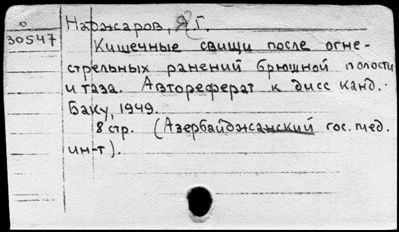 о
30547
Наджаров, Я.Г.
Кишечные свищи после огне-
стрельных ранений брюшной полости
и таза. Автореферат к дисс канд.
Баку, 1949.
8 стр. (Азербайджанский гос. мед.
ин-т).